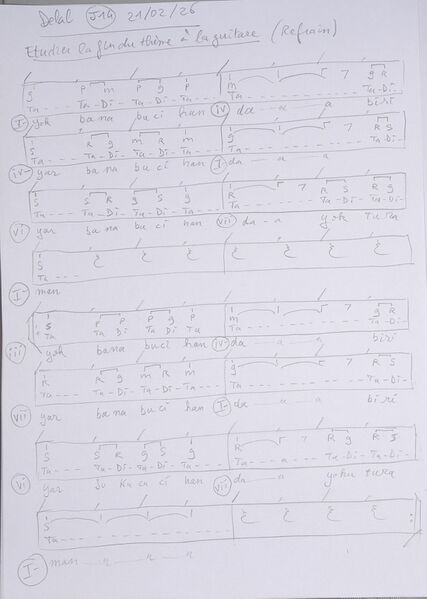 Delal J14 21/02/26
Etudier la fin du thème à la guitare (Refrain)
S P m P g P m 7 g R
Ta - - - - Ta - Di - Ta - Di - Ta - Ta - - - - Ta - Di -
I- yok bana bu ci han iv da a a biri
S R g m R m g 7 R S
Ta - - - - Ta - Di - Ta - Di - Ta - Ta - - - - Ta - Di -
iv- yar bana bu ci han I- da a a
S S R g S g R 7 R S R g
Ta - - - - Ta - Di - Ta - Di - Ta - Ta - - - - Ta - Di - Ta - Di
vi yar bana bu ci han vii da - a yok tura
S
Ta - - - -
I- man
S P P P g P m 7 g R
Ta - - - - Ta Di Ta Di Ta Ta - - - - Ta - Di -
iii yok bana bu ci han iv- da a a biri
R R g m R m g 7 R S
Ta - - - - Ta - Di - Ta - Di - Ta - Ta - - - - Ta - Di -
vii yar bana bu ci han I- da a a biri
S S R g S g R 7 R g R S
Ta - - - - Ta - Di - Ta - Di - Ta - - - Ta - - - a - - Ta - Di - Ta - Di -
vi yar ci han vii da a yoku tura
S
Ta - - - -
I- man